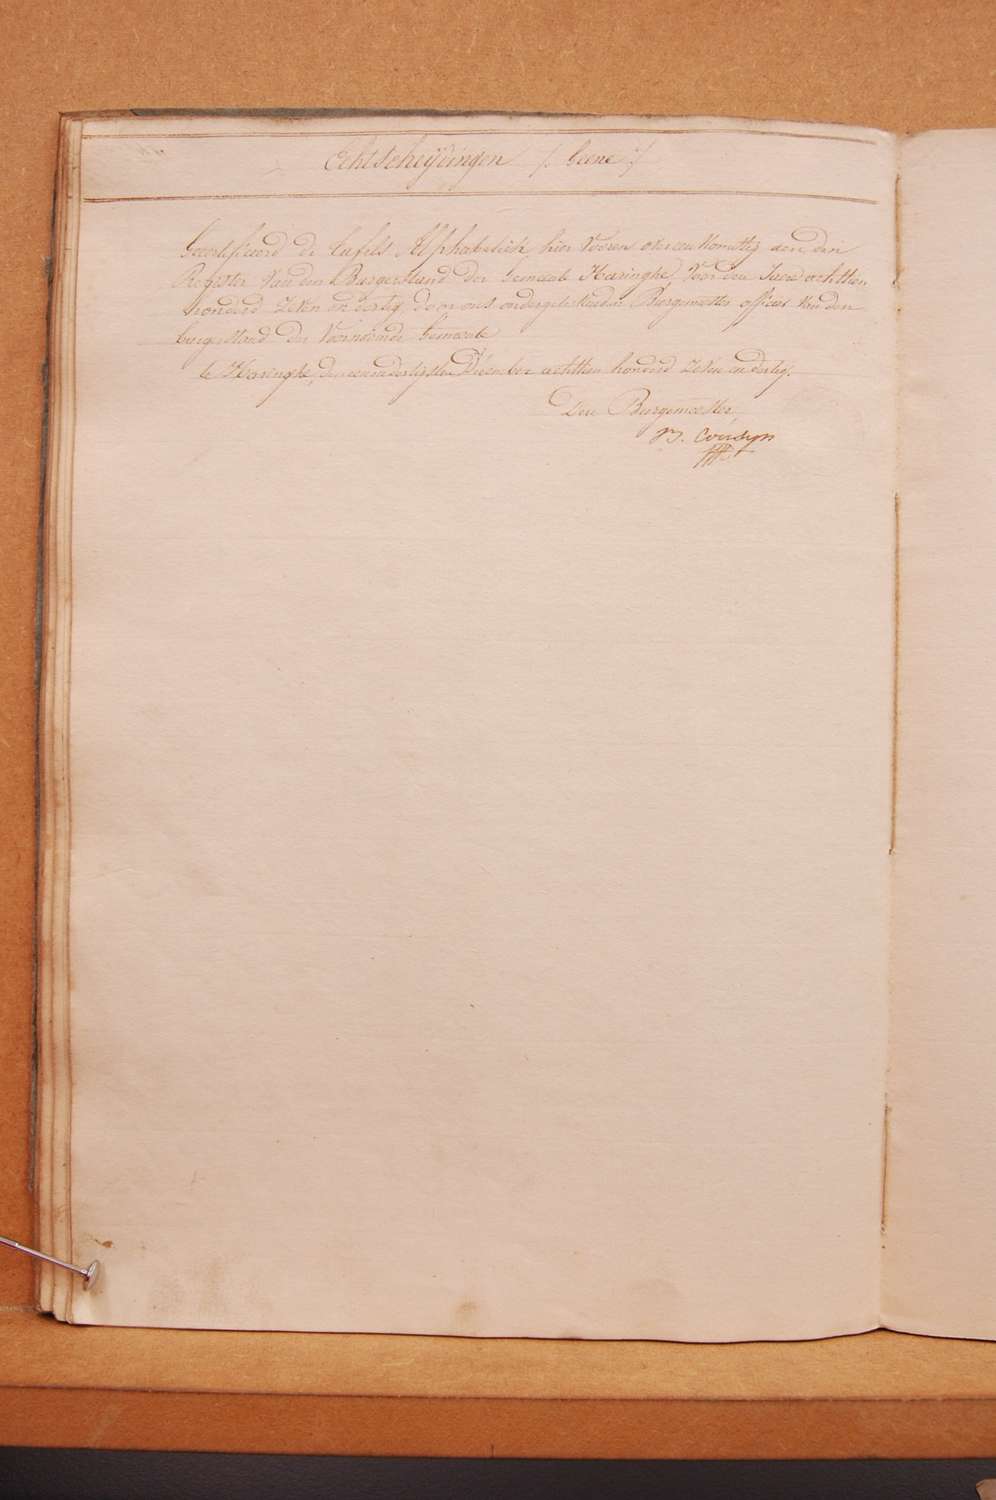 Echtscheijdingen /. Geene ./
Gecertifieerd de tafels Alphabetiek hier vooren overeenkomstig aen den
Register van den Burgerstand der Gemeente Haringhe voor den Jaere achthien
honderd zeven en dertig, door ons ondergeteekenden Burgemeester officier van den
burgerstand der voornoemde Gemeente
te Haringhe, den eenendertigsten December achthien honderd zeven en dertig.
Den Burgemeester,